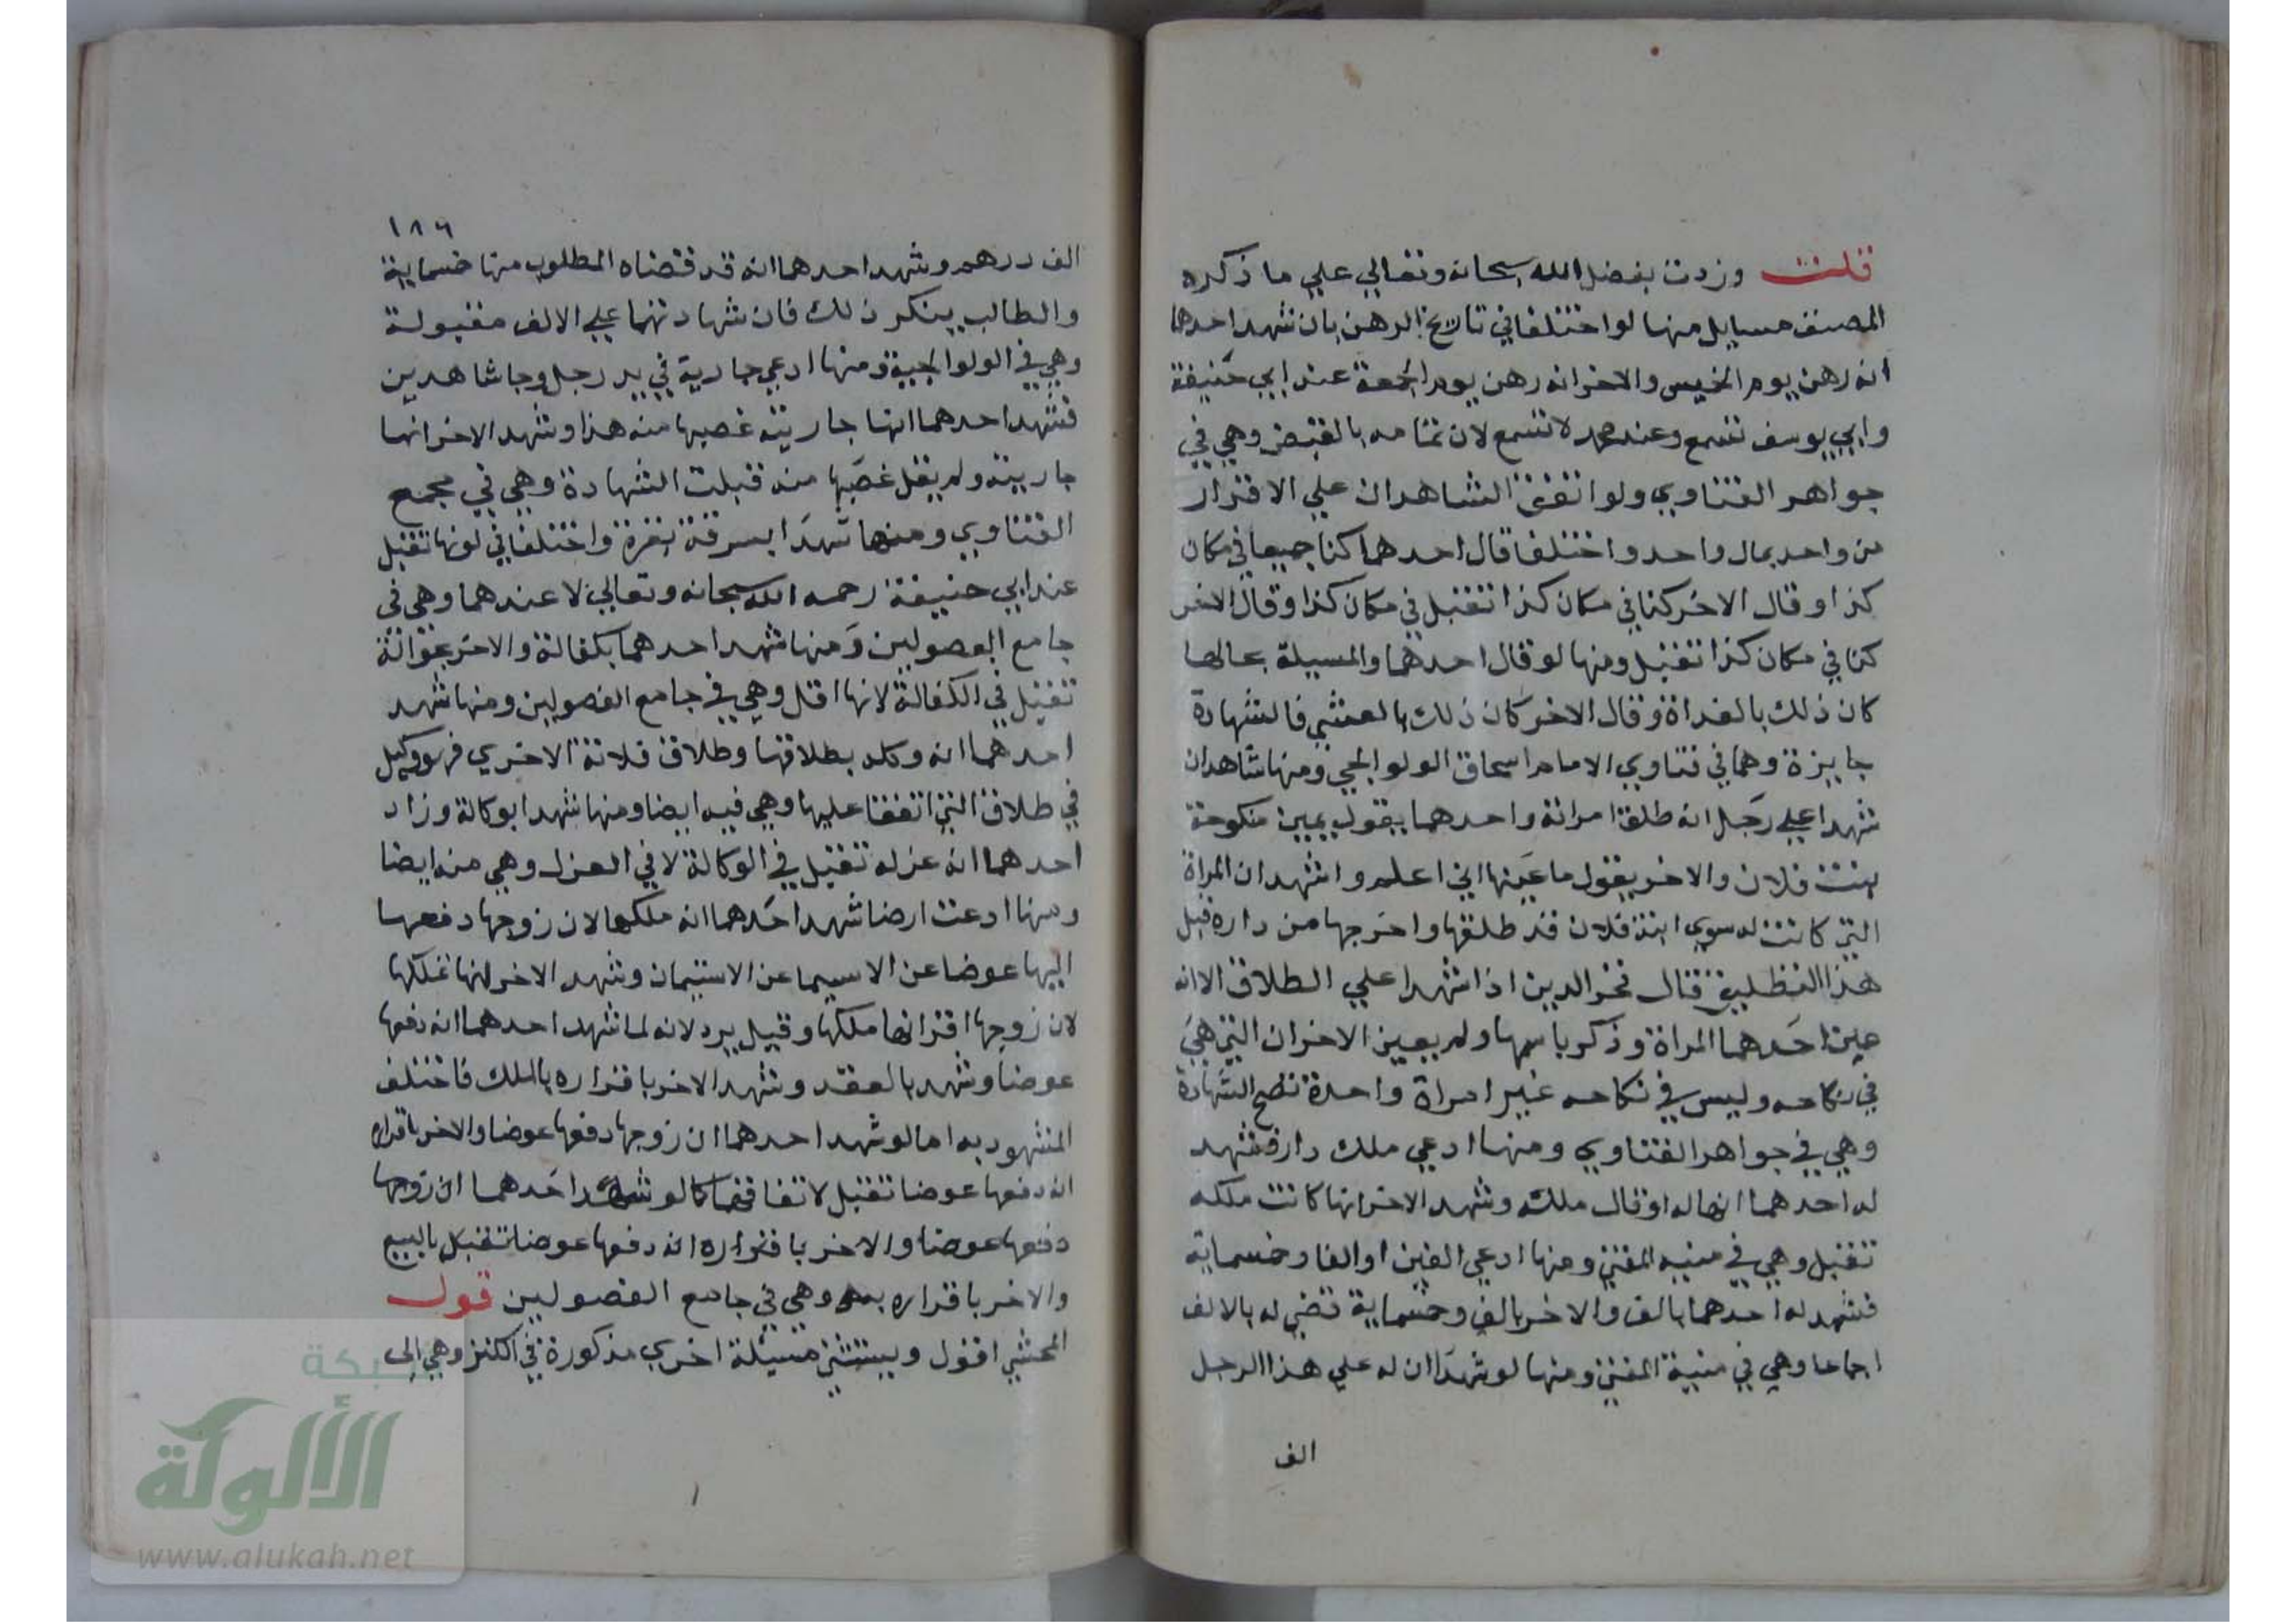 قلت وزدت بفضل الله سبحانه وتعالي علي ما ذكره
المصنف مسايل منها لو اختلفا في تاريخ الرهن بان شهد احدهما
انه رهن يوم الخميس والاخر انه رهن يوم الجمعة عند ابي حنيفة
وابي يوسف تسمع وعند محمد لا تسمع لان تمامه بالقبض وهي في
جواهر الفتاوي ولو اتفق الشاهدان علي الاقرار
من واحد بمال واحد واختلفا قال احدهما كنا جميعا في مكان
كذا وقال الاخر كنا في مكان كذا تقبل في مكان كذا وقال الاخر
كنا في مكان كذا تقبل ومنها لو قال احدهما والمسيلة بحالها
كان ذلك بالغداة وقال الاخر كان ذلك بالعشي فالشهادة
جايزة وهما في فتاوي الامام اسحاق الولوالجي ومنها شاهدان
شهدا علي رجل انه طلق امراته واحدهما يقول يمين منكوحة
بنت فلان والاخر يقول ما عينها اني اعلم واشهد ان المراة
التي كانت له سوي ابنة فلان قد طلقها واخرجها من داره قبل
هذا التطليق قال فخر الدين اذا شهدا علي الطلاق الا انه
عين احدهما المراة وذكر باسمها ولم يعين الاخر ان التي هي
في نكاحه وليس في نكاحه غير امراة واحدة تصح الشهادة
وهي في جواهر الفتاوي ومنها ادعي ملك دار فشهد
له احدهما انها له او قال ملكه وشهد الاخر انها كانت ملكه
تقبل وهي في منيه المفتي ومنها ادعي الفين او الفا وخمسماية
فشهد له احدهما بالف والاخر بالف وخمسماية قضي له بالالف
اجماعا وهي في منية المفتي ومنها لو شهدا ان له علي هذا الرجل
الف
١٨٦
الف درهم وشهد احدهما انه قد قضاه المطلوب منها خمسماية
والطالب ينكر ذلك فان شهادتهما علي الالف مقبولة
وهي في الولوالجية ومنها ادعي جارية في يد رجل وجا شاهدين
فشهد احدهما انها جاريته غصبها منه هذا وشهد الاخر انها
جاريته ولم يقل غصبها منه قبلت الشهادة وهي في مجمع
الفتاوي ومنها شهدا بسرقة بقرة واختلفا في لونها تقبل
عند ابي حنيفة رحمه الله سبحانه وتعالي لا عندهما وهي في
جامع الفصولين ومنها شهد احدهما بكفالة والاخر بحوالة
تقبل في الكفالة لانها اقل وهي في جامع الفصولين ومنها شهد
احدهما انه وكله بطلاقها وطلاق فلانة الاخري فهو وكيل
في طلاق التي اتفقا عليها وهي فيه ايضا ومنها شهدا بوكالة وزاد
احدهما انه عزله تقبل في الوكالة لا في العزل وهي منه ايضا
ومنها ادعت ارضا شهد احدهما انه ملكها لان زوجها دفعها
اليها عوضا عن الاسيما عن الاستيمان وشهد الاخر انها تملكها
لان زوجها اقر انها ملكها وقيل يرد لانه لما شهد احدهما انه دفعها
عوضا وشهد بالعقد وشهد الاخر باقراره بالملك فاختلف
المشهود به اما لو شهد احدهما ان زوجها دفعها عوضا والاخر باقراره
انه دفعها عوضا تقبل لاتفاقهما كما لو شهد احدهما ان زوجها
دفعها عوضا والاخر باقراره انه دفعها عوضا تقبل بالبيع
والاخر باقراره به وهي في جامع الفصولين قول
المحشي اقول ويستثني مسيلة اخري مذكورة في الكنز وهي الي
شبكة
الألوكة
www.alukah.net